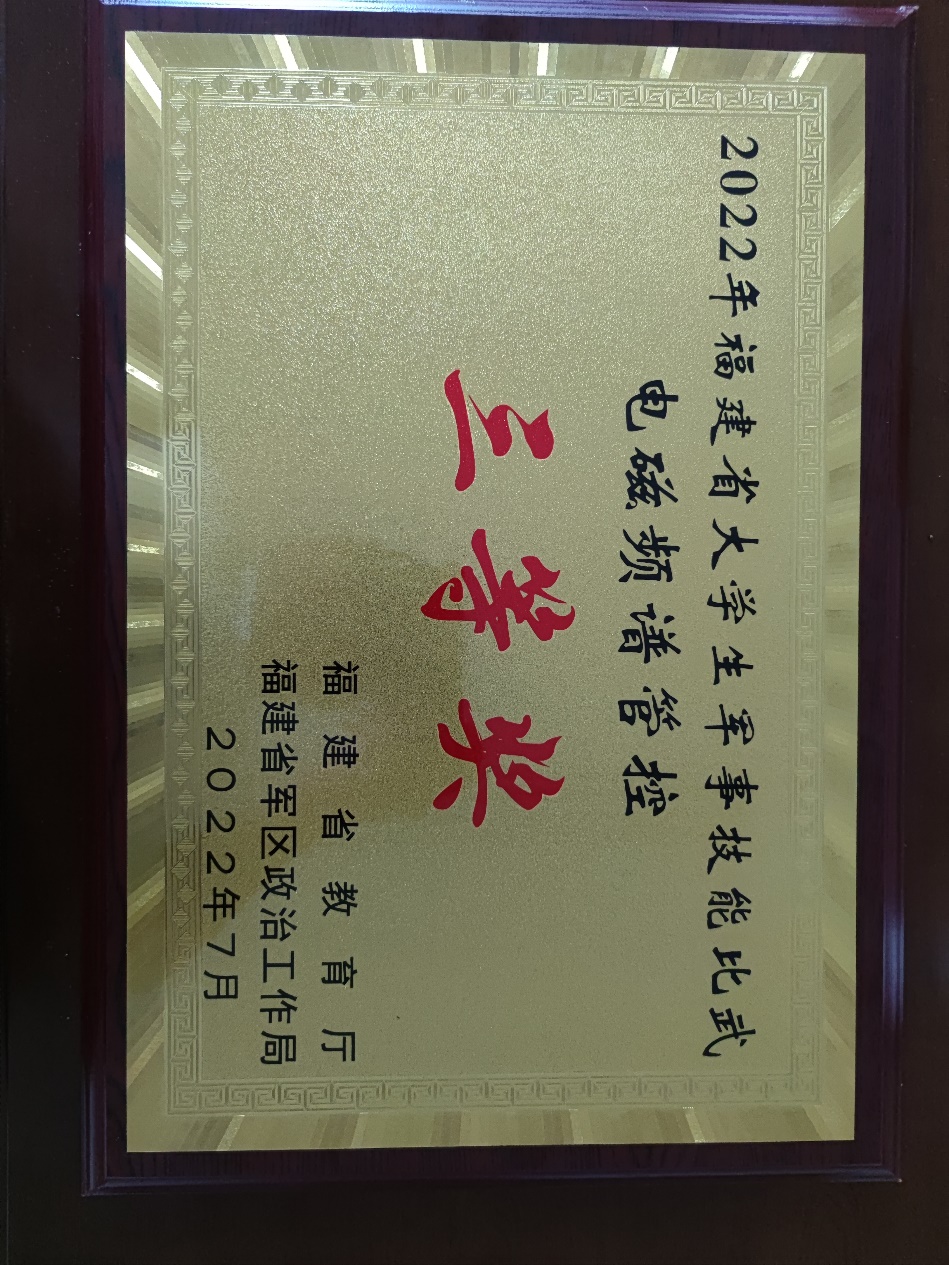 2022年福建省大学生军事技能比武
电磁频谱管控
三等奖
福建省教育厅
福建省军区政治工作局
2022年7月